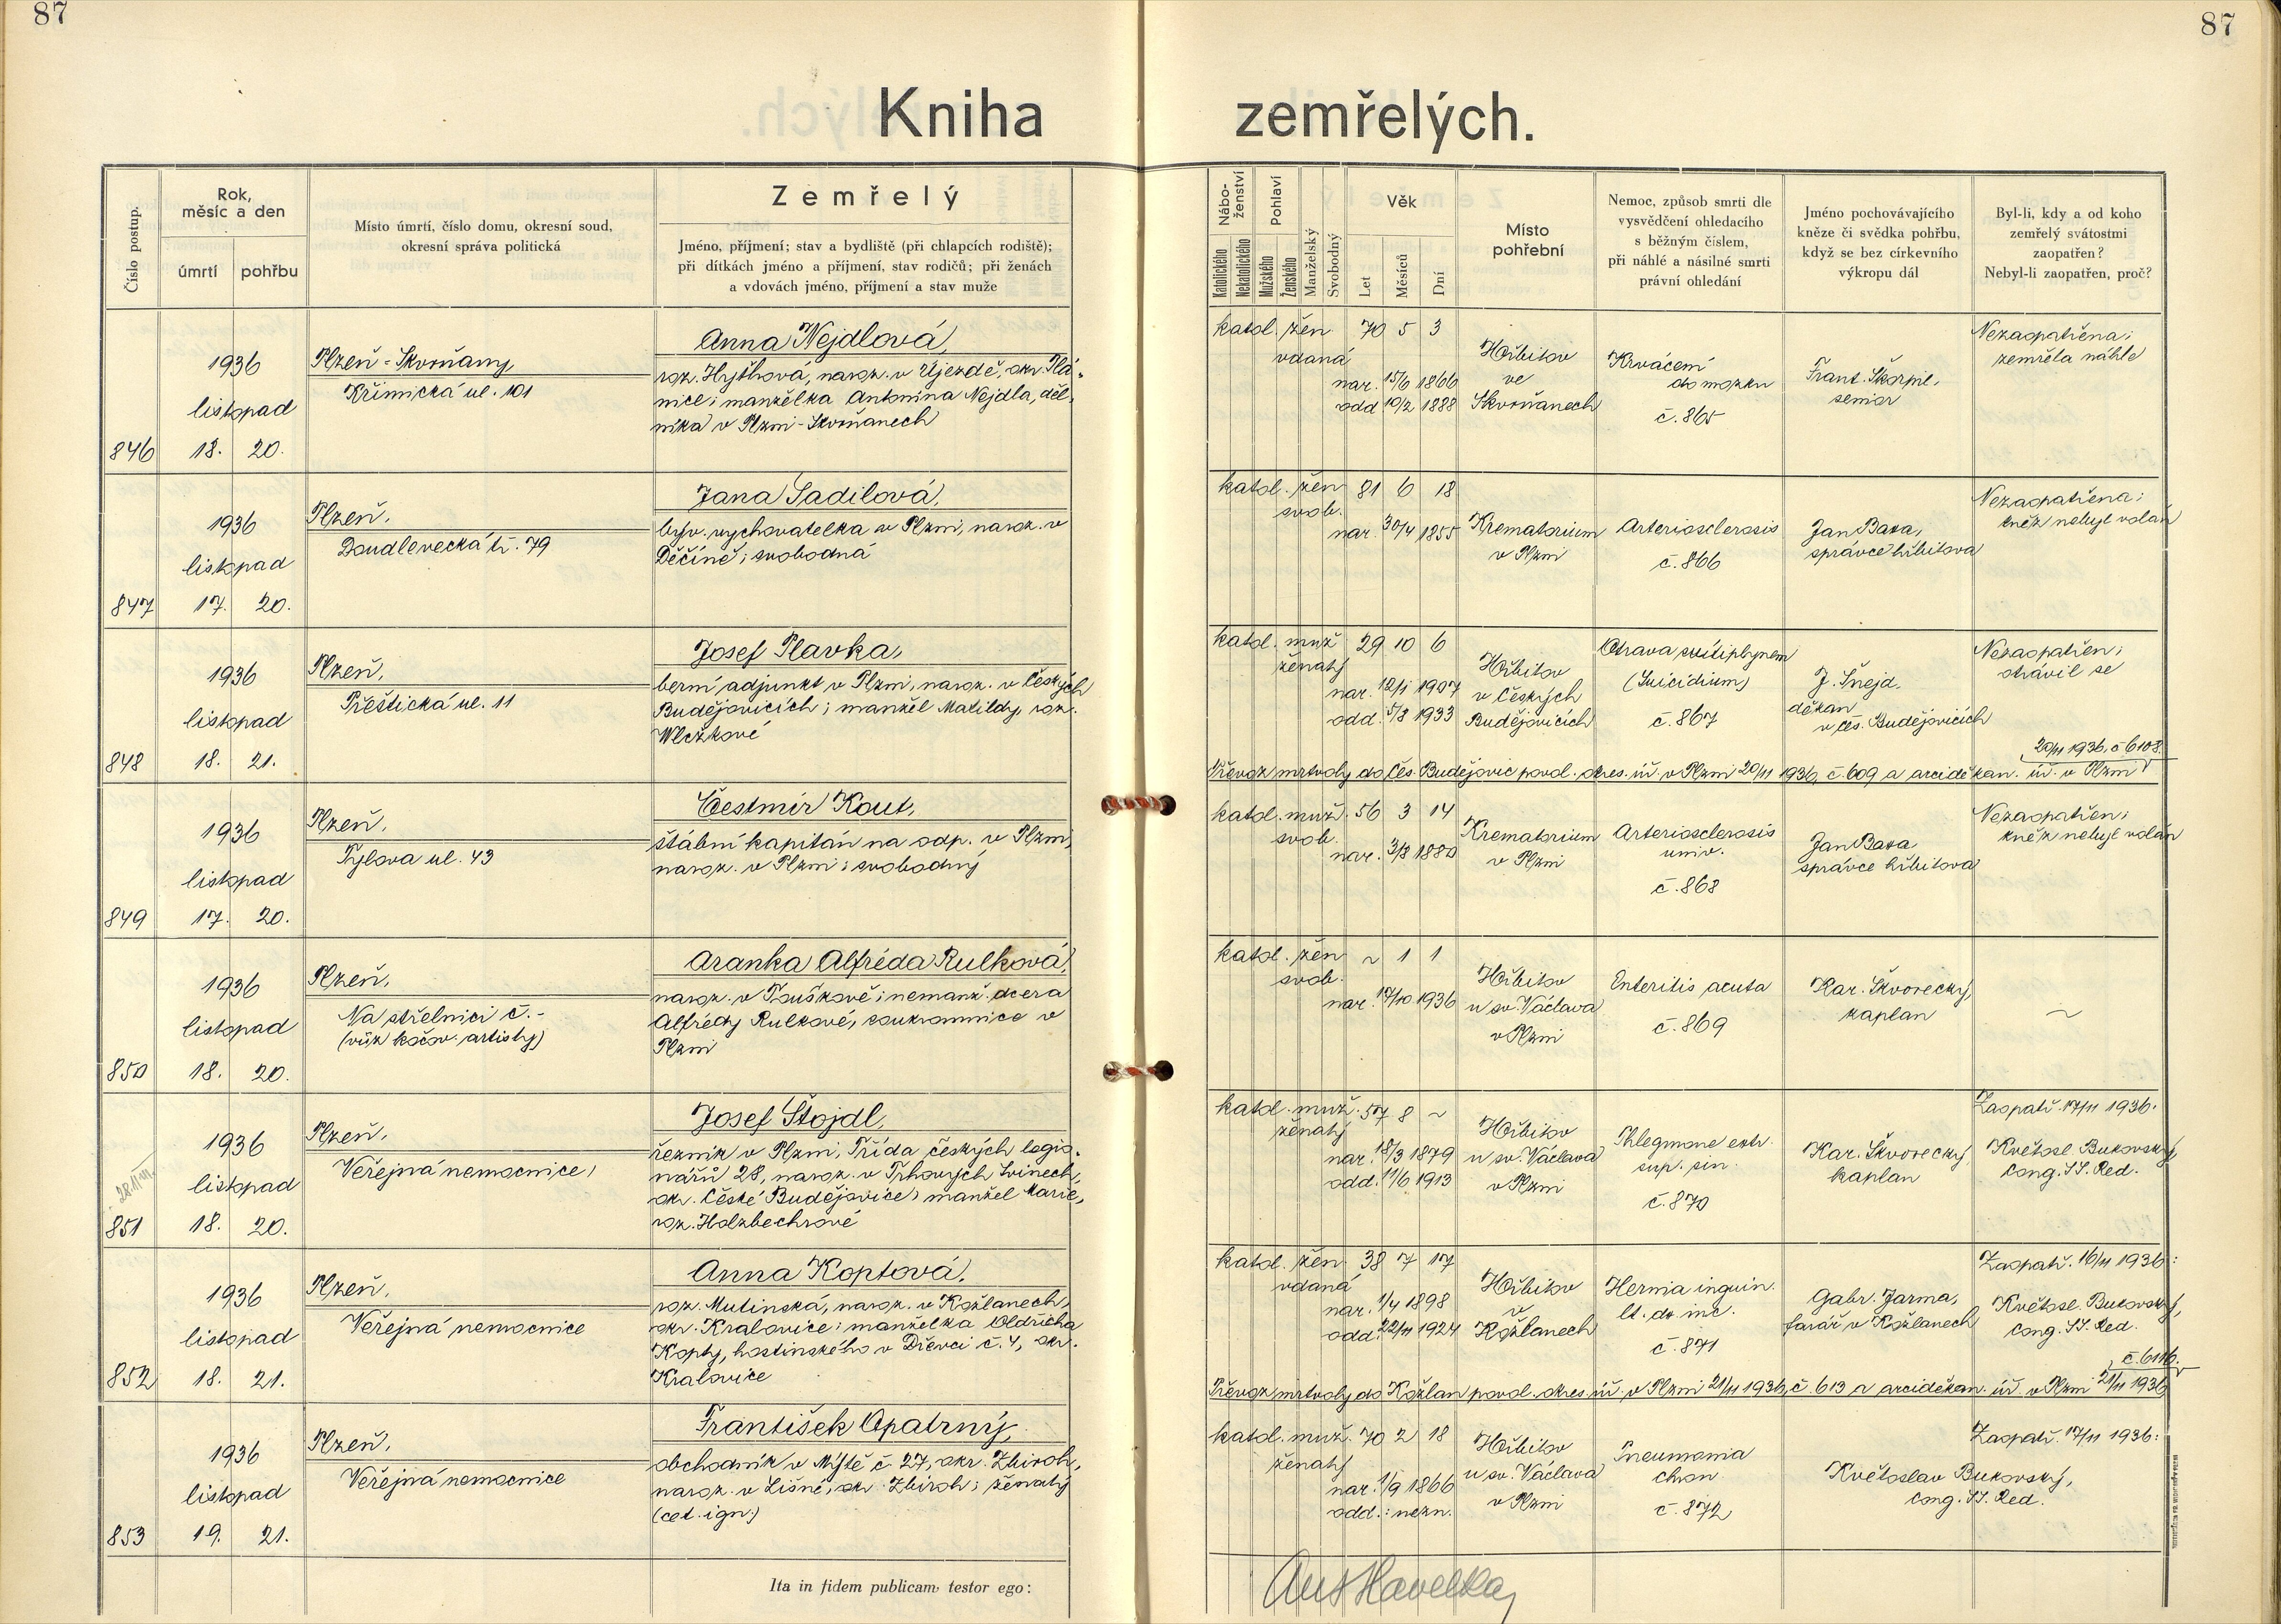 87
87
Kniha zemřelých.
Číslo postup.
Rok, měsíc a den
úmrtí
pohřbu
Místo úmrtí, číslo domu, okresní soud,
okresní správa politická
Zemřelý
Jméno, příjmení; stav a bydliště (při chlapcích rodiště);
při dítkách jméno a příjmení, stav rodičů; při ženách
a vdovách jméno, příjmení a stav muže
Nábo-
ženství
Katolického
Nekatolického
Pohlaví
Mužského
Ženského
Manželský
Svobodný
Věk
Let
Měsíců
Dní
Místo
pohřební
Nemoc, způsob smrti dle
vysvědčení ohledacího
s běžným číslem,
při náhlé a násilné smrti
právní ohledání
Jméno pochovávajícího
kněze či svědka pohřbu,
když se bez církevního
výkropu dál
Byl-li, kdy a od koho
zemřelý svátostmi
zaopatřen?
Nebyl-li zaopatřen, proč?
846
1936
listopad
18. 20.
Plzeň-Skvrňany
Křimická ul. 101
Anna Nejdlová,
roz. Hryšková, naroz. v Újezdě, okr. Plá-
nice; manželka Antonína Nejdla, děl-
níka v Plzni-Skvrňanech
katol. žen. 70 5 3
vdaná
nar. 15/6 1866
odd 10/2 1888
Hřbitov
ve
Skvrňanech
Krvácení
do mozku
č. 865
Frant. Škorpil,
senior
Nezaopatřena;
zemřela náhle
847
1936
listopad
17. 20.
Plzeň,
Doudlevecká tř. 79
Jana Sadilová,
býv. vychovatelka v Plzni, naroz. v
Děčíně; svobodná
katol. žen 81 6 18
svob.
nar. 30/4 1855
Krematorium
v Plzni
Arteriosclerosis
č. 866
Jan Basa,
správce hřbitova
Nezaopatřena;
kněz nebyl volán
848
1936
listopad
18. 21.
Plzeň,
Přeštická ul. 11
Josef Plavka,
berní adjunkt v Plzni, naroz. v Českých
Budějovicích; manžel Matildy, roz.
Wlczkové
katol. muž 29 10 6
ženatý
nar. 12/1 1907
odd. 5/8 1933
Hřbitov
v Českých
Budějovicích
Otrava svítiplynem
(Suicidium)
č. 867
J. Šnejd.
děkan
v Čes. Budějovicích
Nezaopatřen;
otrávil se
20/11 1936. č 6108.
Převoz mrtvoly do Čes. Budějovic povol. okres. úř. v Plzni 20/11 1936, č. 609 a arciděkan. úř. v Plzni
849
1936
listopad
17. 20.
Plzeň,
Tylova ul. 43
Čestmír Kout,
štábní kapitán na odp. v Plzni,
naroz. v Plzni; svobodný
katol. muž. 56 3 14
svob.
nar. 3/8 1880
Krematorium
v Plzni
Arteriosclerosis
univ.
č. 868
Jan Basa
správce hřbitova
Nezaopatřen;
kněz nebyl volán
850
1936
listopad
18. 20.
Plzeň,
Na střelnici č. -
(vůz kočov. artisty)
Aranka Alfréda Rulková,
naroz. v Touškově; nemanž. dcera
Alfrédy Rulkové, soukromnice v
Plzni
katol. žen ~ 1 1
svob.
nar. 17/10 1936
Hřbitov
u sv. Václava
v Plzni
Enteritis acuta
č. 869
Kar. Škvorecký,
kaplan
~
851
1936
listopad
18. 20.
Plzeň,
Veřejná nemocnice,
Josef Štojdl,
řezník v Plzni, Třída českých legio-
nářů 28, naroz. v Trhových Svinech,
okr. České Budějovice; manžel Marie,
roz. Holzbechrové
katol. muž. 57 8 ~
ženatý
nar. 18/3 1879
odd. 11/6 1913
Hřbitov
u sv. Václava
v Plzni
Phlegmone extr.
sup. sin.
č. 870
Kar. Škvorecký,
kaplan
Zaopatř. 17/11 1936.
Květosl. Bukovský,
Cong. SS. Red.
852
1936
listopad
18. 21.
Plzeň,
Veřejná nemocnice
Anna Koptová,
roz. Mutinská, naroz. v Kožlanech,
okr. Kralovice; manželka Oldřicha
Kopty, hostinského v Dřevci č. 4, okr.
Kralovice
katol. žen 38 7 17
vdaná
nar. 1/4 1898
odd. 22/11 1924
Hřbitov
v
Kožlanech
Hernia inguin.
lt. do inc.
č. 871
Gabr. Jarma,
farář v Kožlanech
Zaopatř. 16/11 1936:
Květosl. Bukovský,
Cong. SS. Red.
č. 6116.
Převoz mrtvoly do Kožlan povol. okres. úř. v Plzni 21/11 1936, č 613 a arciděkan. úř. v Plzni 21/11 1936
853
1936
listopad
19. 21.
Plzeň,
Veřejná nemocnice
František Opatrný,
obchodník v Mýtě č. 27, okr. Zbiroh,
naroz. v Lišné, okr. Zbiroh; ženatý
(cet. ign.)
katol. muž. 70 2 18
ženatý
nar. 1/9 1866
odd.: nezn.
Hřbitov
u sv. Václava
v Plzni
Pneumonia
chron.
č. 872
Květoslav Bukovský,
Cong. SS. Red.
Zaopatř. 17/11 1936:
Ita in fidem publicam testor ego:
Ant Havelka,